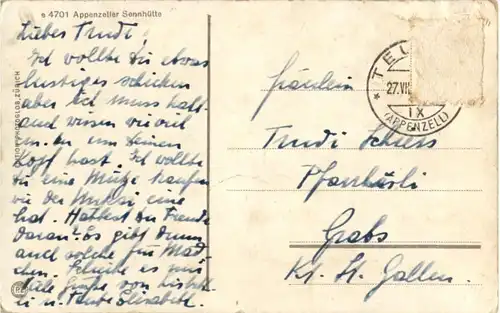 4701 Appenzeller Sennhütte
Liebes Trudi,
Ich wollte Dir etwas
lustiges schicken
aber ich muss halt
und wissen wieviel
um Deinen
Kopf hast. Ich wollte
dir eine Mütze kaufen
wie der Munsi eine
hat. Hattest Du Freude
daran? Es gibt
auch solche für Mäd
chen. Schreibe es mir
viele Grüsse von
u. Tante Elisabeth.
TEU
27.VII
IX
(APPENZELL)
Fräulein
Trudi Schiess
Pfarrhüsli
Grabs
Kt. St. Gallen.
PHOTOGLOB, ZÜRICH